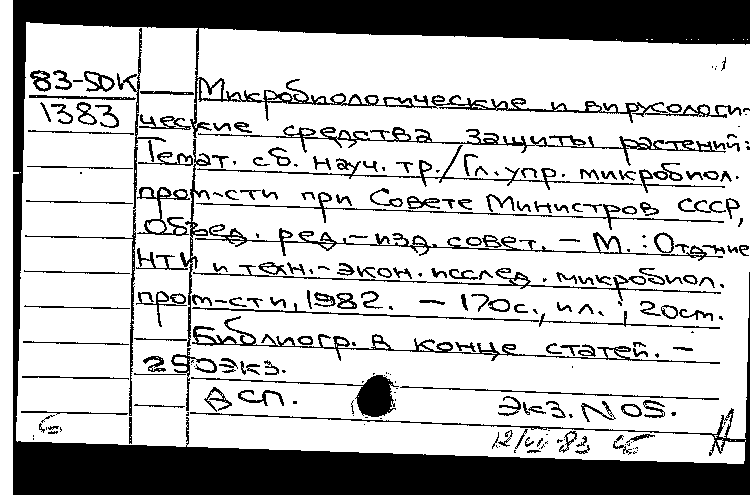 83-5ДК
1383
Микробиологические и вирусологи-
ческие средства защиты растений:
Темат. сб. науч. тр./Гл. упр. микробиол.
пром-сти при Совете Министров СССР,
Объед. ред.-изд. совет. - М.: Отд-ние
НТИ и техн.-экон. исслед. микробиол.
пром-сти, 1982. - 170с., ил. ; 20см.
Библиогр. в конце статей. -
250экз.
ДСП.
Экз. N 05.
12/VII-83